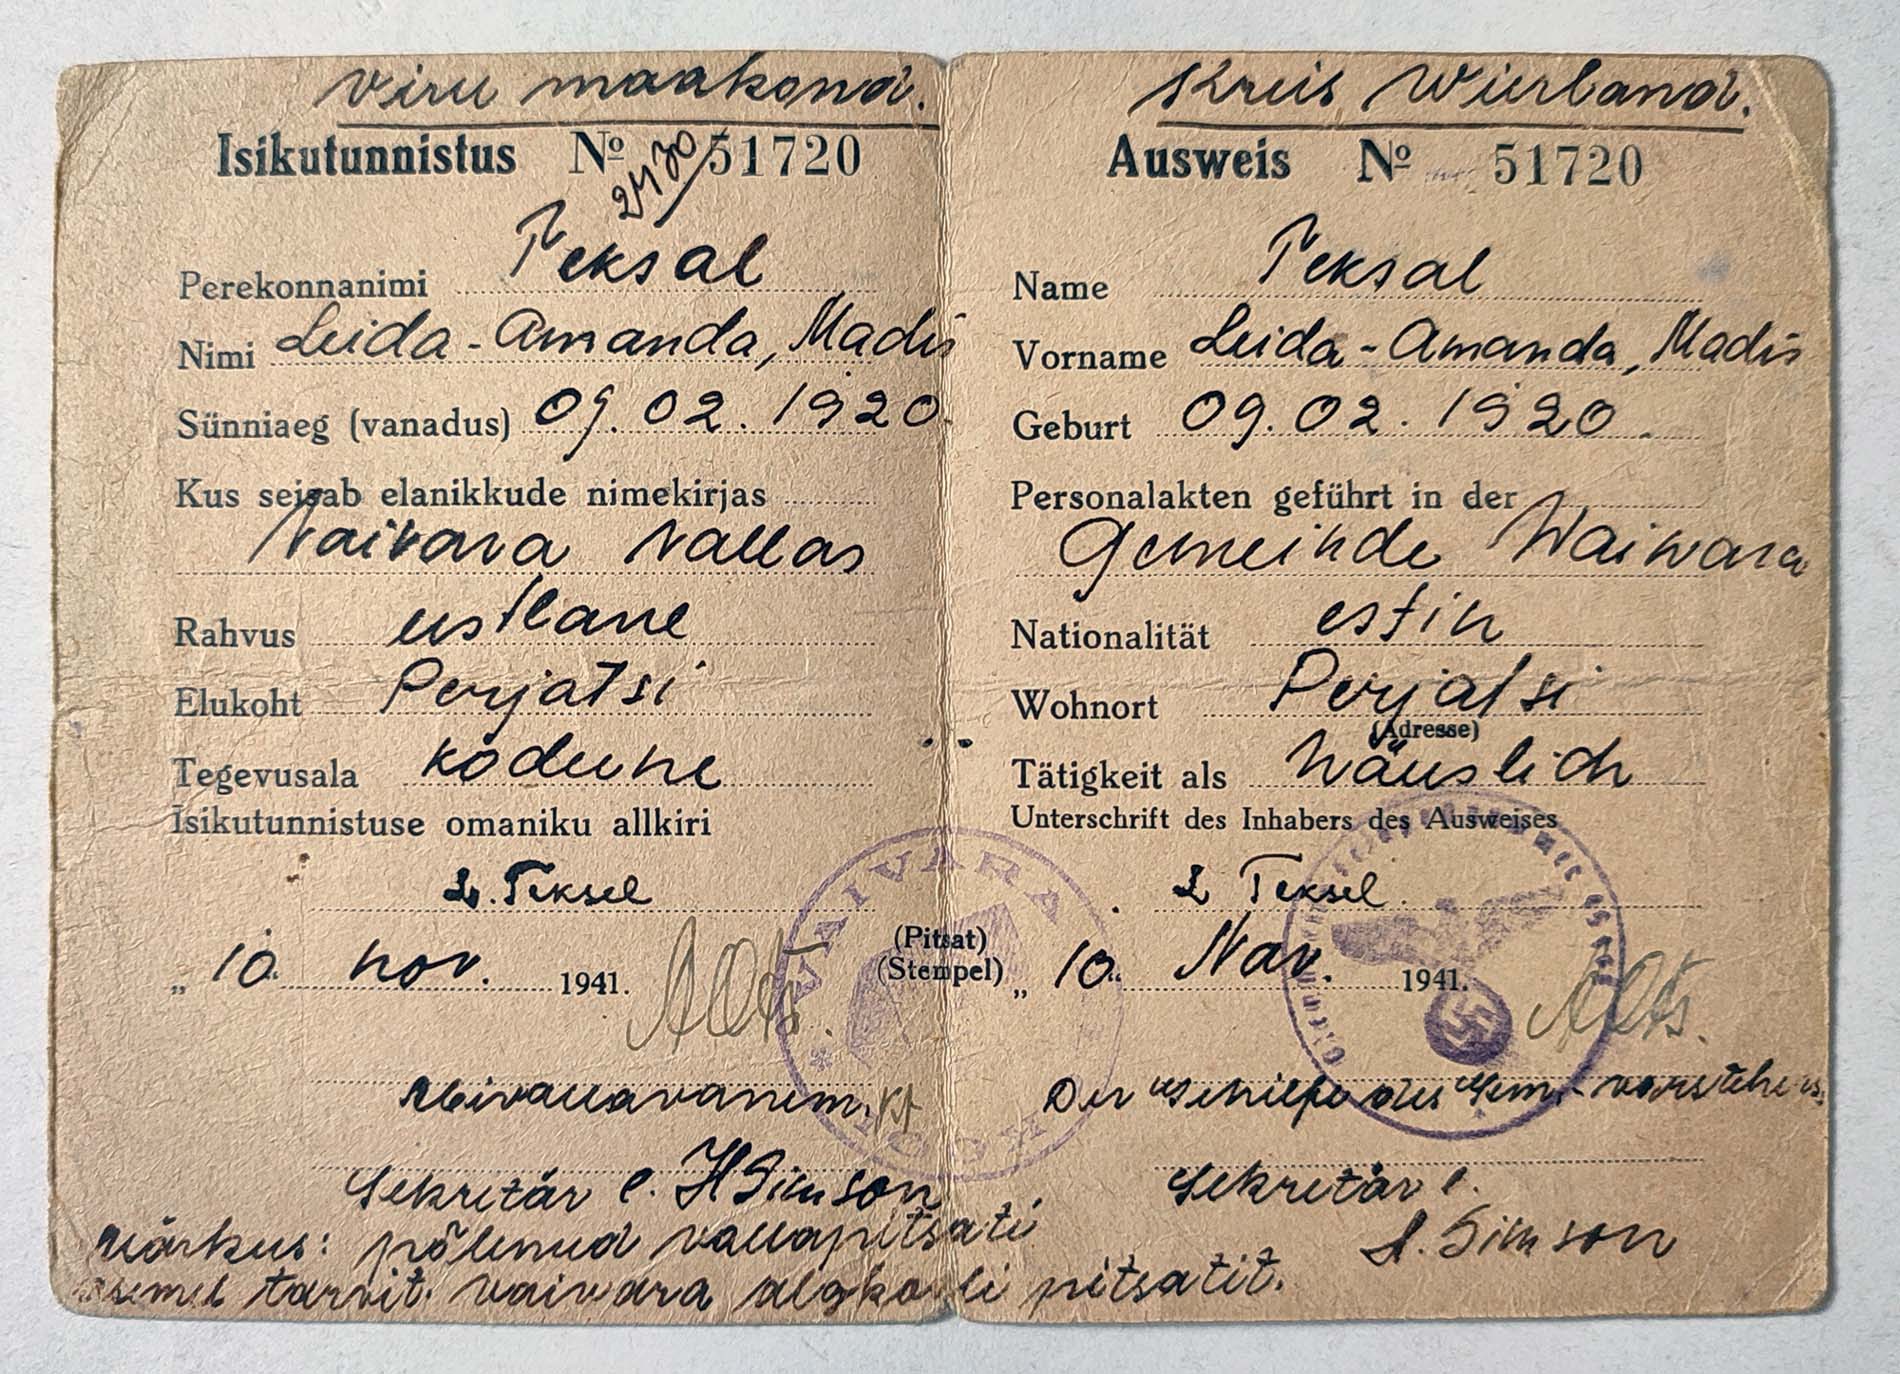 Viru maakond.
Isikutunnistus № 51720
2430/
Perekonnanimi Teksal
Nimi Leida-Amanda, Madis
Sünniaeg (vanadus) 09.02.1920
Kus seisab elanikkude nimekirjas
Vaivara Vallas
Rahvus eestlane
Elukoht Perjatsi
Tegevusala kodune
Isikutunnistuse omaniku allkiri
L. Teksel
„10“ nov. 1941.
(Pitsat)
(Stempel)
VAIVARA
Abivallavanem.
Sekretär e. H Simson
Märkus: põlenud vallapitsati
asemel tarvit. Vaivara algkooli pitsatit.
Kreis Wierland.
Ausweis № 51720
Name Teksal
Vorname Leida-Amanda, Madis
Geburt 09.02.1920.
Personalakten geführt in der
Gemeinde Waiwara
Nationalität estin
Wohnort Perjatsi
(Adresse)
Tätigkeit als häuslich
Unterschrift des Inhabers des Ausweises
L Teksel.
„10“ Nov. 1941.
Der Gehilfe des Gem.-vorstehers.
Sekretär e.
H. Simson